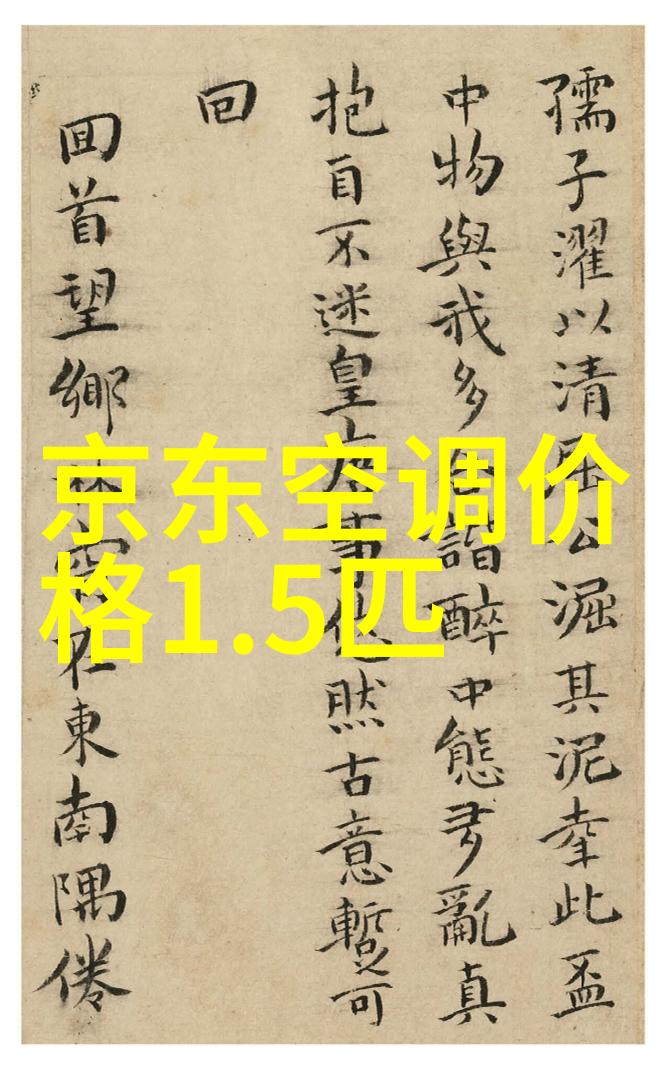 京东空调价
格1.5匹
孺子濯以清屈公淈其泥幸此盃
中物與我多諧醉中態多亂真
抱自不迷皇事悠然古意暫可
回
回首望鄉林在東南隅倦